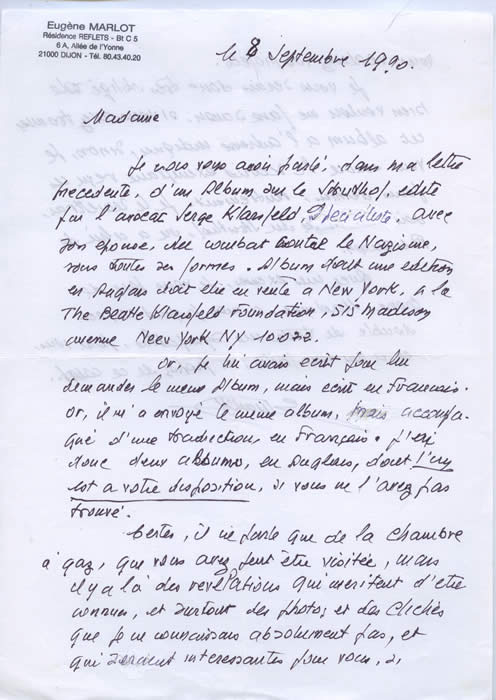 Eugène MARLOT
Résidence REFLETS - Bt C 5
6 A, Allée de l'Yonne
21000 DIJON - Tél. 80.43.40.20
le 8 Septembre 1990.
Madame
Je vous avoir parlé, dans ma lettre
precedente, d'un Album sur le Struthof, édité
par l'avocat Serge Klarsfeld, Spécialiste, avec
son epouse, du combat contre le Nazisme,
sous toutes ses formes. Album dont une edition
en Anglais doit etre en vente a New York, a la
The Beate Klarsfeld Foundation, 515 Madison
avenue New York NY 10022.
Or, je lui avais ecrit pour lui
demander le meme Album, mais ecrit en Francais.
Or, il m'a envoyé le même album, mais accompa-
gné d'une traduction, en Français. J'ai
donc deux albums, en Anglais, dont l'un
est a votre disposition, si vous ne l'avez pas
trouvé.
Certes, il ne parle que de la chambre
à gaz, que vous avez peut être visitée, mais
il y a là des revelations qui meritent d'etre
connues, et surtout des photos et des clichés
que je ne connaissais absolument pas, et
qui seraient interessantes pour vous, si